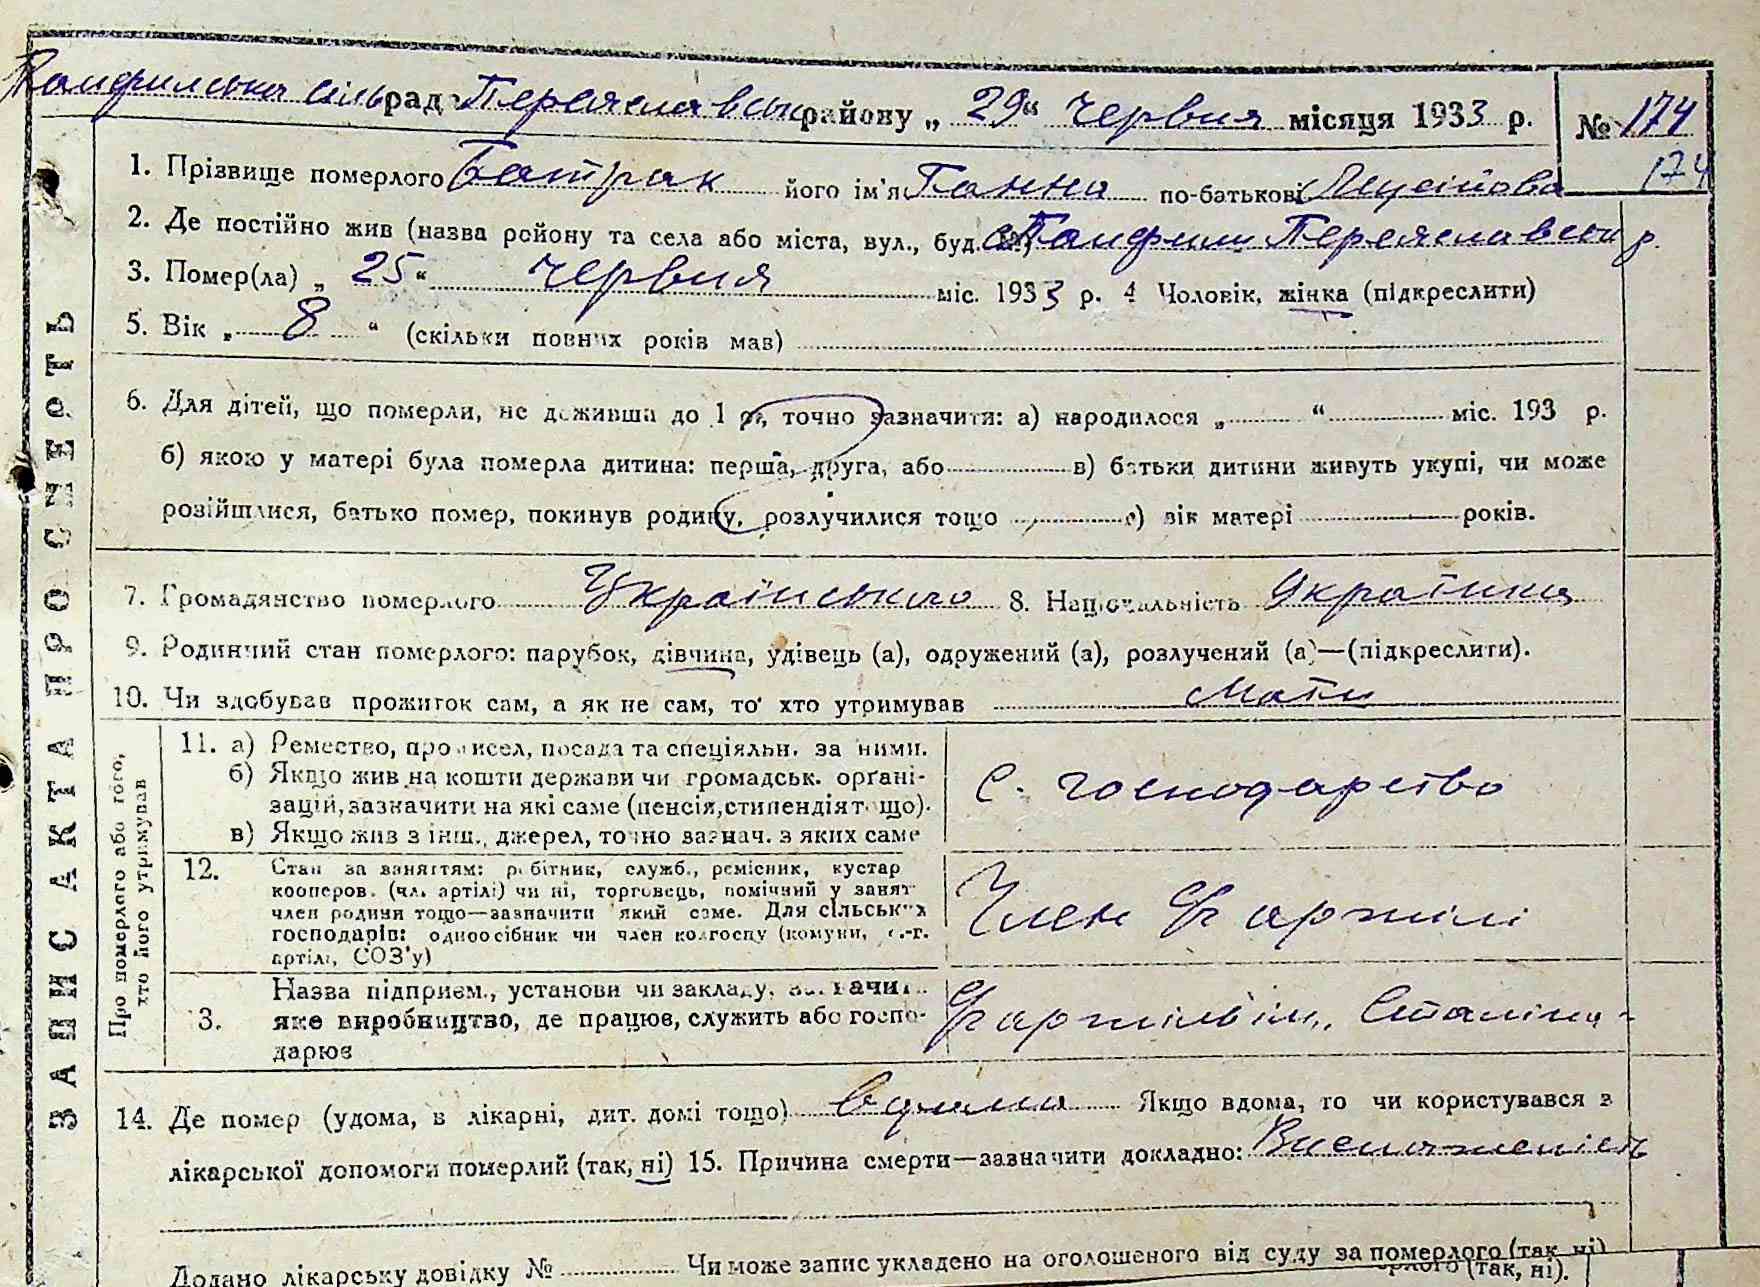 Помфильська сільрада Переяславськ району „ 29 “ Червня місяця 1933 р. № 174
174
1. Прізвище померлого Батрак його ім'я Ганна по-батькові
2. Де постійно жив (назва району та села або міста, вул., буд. №) с. Помфили Переяславськ р.
3. Помер(ла) „ 25 “ червня міс. 1933 р. 4 Чоловік, жінка (підкреслити)
5. Вік „ 8 “ (скільки повних років мав)
6. Для дітей, що померли, не доживши до 1 р., точно зазначити: а) народилося „ “ міс. 193 р.
б) якою у матері була померла дитина: перша, друга, або в) батьки дитини живуть укупі, чи може
розійшлися, батько помер, покинув родину, розлучилися тощо г) вік матері років.
7. Громадянство померлого Українського 8. Національність Українка
9. Родинний стан померлого: парубок, дівчина, удівець (а), одружений (а), розлучений (а)—(підкреслити).
10. Чи здобував прожиток сам, а як не сам, то хто утримував Мати
ЗАПИС АКТА ПРО СМЕРТЬ
Про померлого або того,
хто його утримував
11. а) Ремество, промисел, посада та спеціяльн. за ними.
б) Якщо жив на кошти держави чи громадськ. органі-
зацій, зазначити на які саме (пенсія, стипендія тощо).
в) Якщо жив з інш., джерел, точно зазнач. з яких саме
С. господарство
12. Стан за заняттям: робітник, служб., ремісник, кустар
кооперов. (чл. артілі) чи ні, торговець, помічний у занят
член родини тощо—зазначити який саме. Для сільських
господарів: одноосібник чи член колгоспу (комуни, с.-г.
артілі, СОЗ'у)
Член артілі
3. Назва підприєм., установи чи закладу, зазначит.
яке виробництво, де працює, служить або госпо-
дарює
артіль ім. Сталіна
14. Де помер (удома, в лікарні, дит. домі тощо) вдома Якщо вдома, то чи користувався з
лікарської допомоги померлий (так, ні) 15. Причина смерти—зазначити докладно: Виснаженість
Додано лікарську довідку № Чи може запис укладено на оголошеного від суду за померлого (так, ні)
(так, ні).